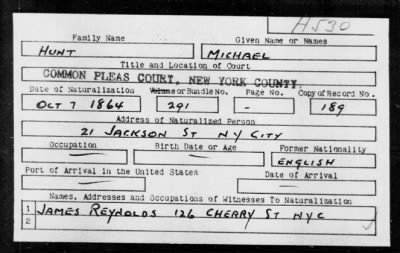 H530
Family Name Given Name or Names
HUNT MICHAEL
Title and Location of Court
COMMON PLEAS COURT, NEW YORK COUNTY.
Date of Naturalization Volume or Bundle No. Page No. Copy of Record No.
OCT 7 1864 291 - 189
Address of Naturalized Person
21 JACKSON ST NY CITY
Occupation Birth Date or Age Former Nationality
ENGLISH
Port of Arrival in the United States Date of Arrival
Names, Addresses and Occupations of Witnesses To Naturalization
1 JAMES REYNOLDS 126 CHERRY ST NYC
2